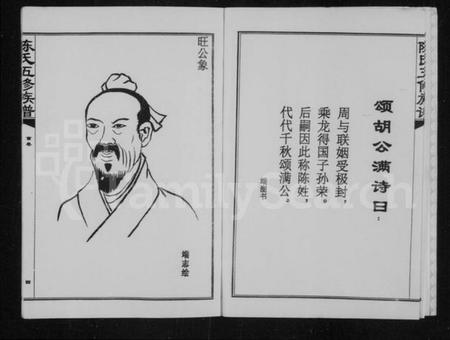 陈氏五修族谱
颂胡公满诗曰：
周与联姻受极封，
乘龙得国子孙荣。
后嗣因此称陈姓，
代代千秋颂满公。
端振书
旺公象
端志绘
陈氏五修族谱
首卷
四
FamilySearch